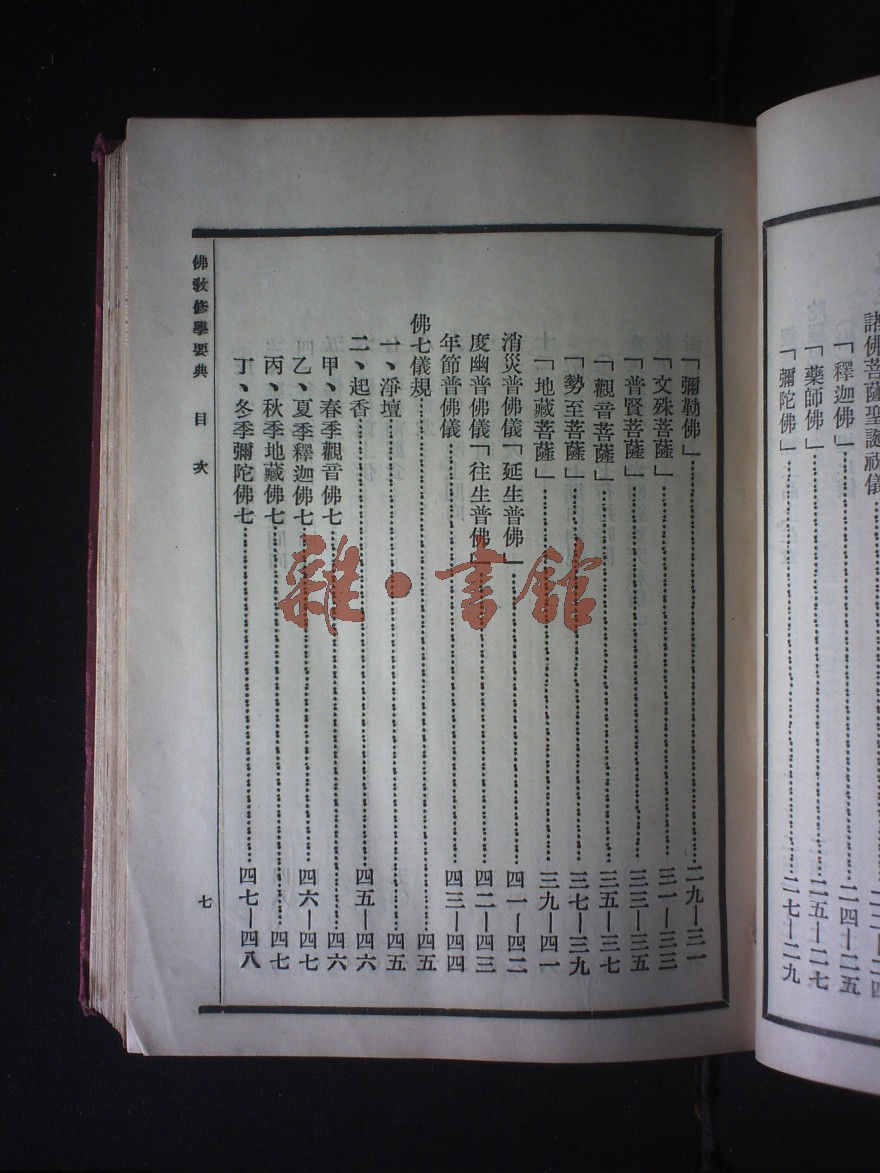 諸佛菩薩聖誕祝儀
「釋迦佛」 二四—二五
「藥師佛」 二五—二七
「彌陀佛」 二七—二九
「彌勒佛」 二九—三一
「文殊菩薩」 三一—三三
「普賢菩薩」 三三—三五
「觀音菩薩」 三五—三七
「勢至菩薩」 三七—三九
「地藏菩薩」 三九—四一
消災普佛儀「延生普佛」 四一—四二
度幽普佛儀「往生普佛」 四二—四三
年節普佛儀 四三—四四
佛七儀規 四五
一、淨壇 四五
二、起香 四五—四六
甲、春季觀音佛七 四六
乙、夏季釋迦佛七 四六—四七
丙、秋季地藏佛七 四七
丁、冬季彌陀佛七 四七—四八
佛教修學要典 目次 七
雜·書館